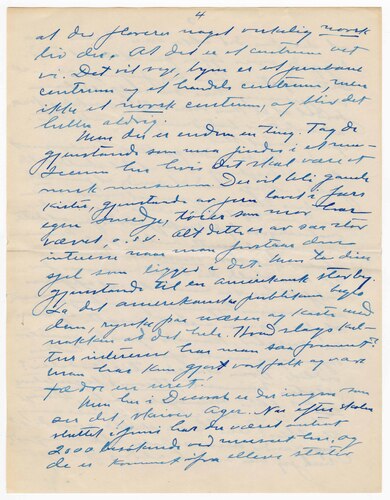 4
at der florerer noget virkelig norsk
liv der. At det er et centrum vet
vi. Det vil sig, byen er et jernbane
centrum og et handels centrum, men
ikke et norsk centrum, og blir det
heller aldrig.
Men der er endnu en ting. Tag de
gjenstande som maa findes i et mu-
seum her hvis det skal være et
norsk museum. Der vil bli gamle
kister, gjenstande av jern lavet i fars
egen smedje, tøier som mor har
vævet, o.s.v. Alt dette er av saa stor
interesse naar man forstaar den
sjel som ligger i det. Men ta disse
gjenstande til en amerikansk storby
La det amerikanske publikum
dem, rynke paa næsen og kaste med
nakken ad det hele. Hvad slags kul-
tur indebærer har man saa fremmet?
Man har kun gjort vort folk og vore
fædre en uret.
Men her i Decorah er der ingen som
ser det, skriver Ager. Nei efter skolen
sluttet i juni har der været omtrent
2000 besøkende ved museet her, og
de er kommet ifra elleve stater